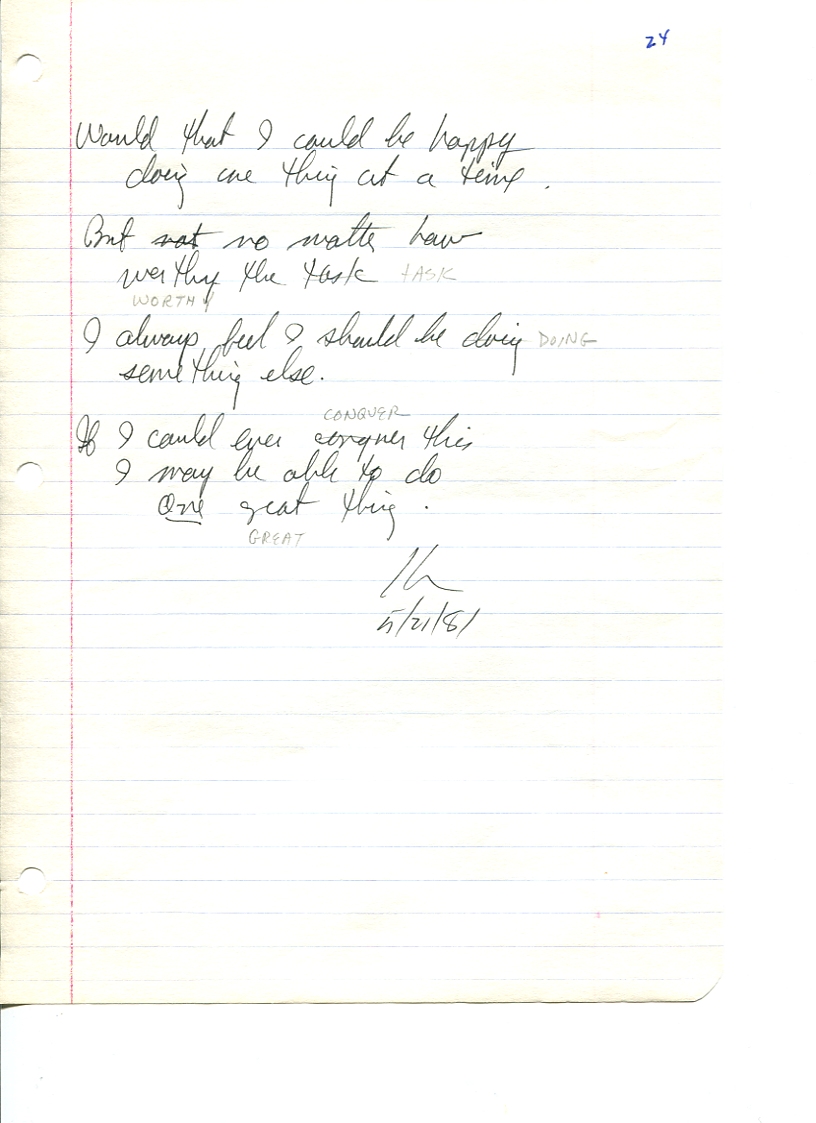 24
Would that I could be happy
doing one thing at a time.
But not no matter how
worthy the task TASK
WORTHY
I always feel I should be doing DOING
something else.
CONQUER
If I could ever conquer this
I may be able to do
One great thing.
GREAT
5/21/81